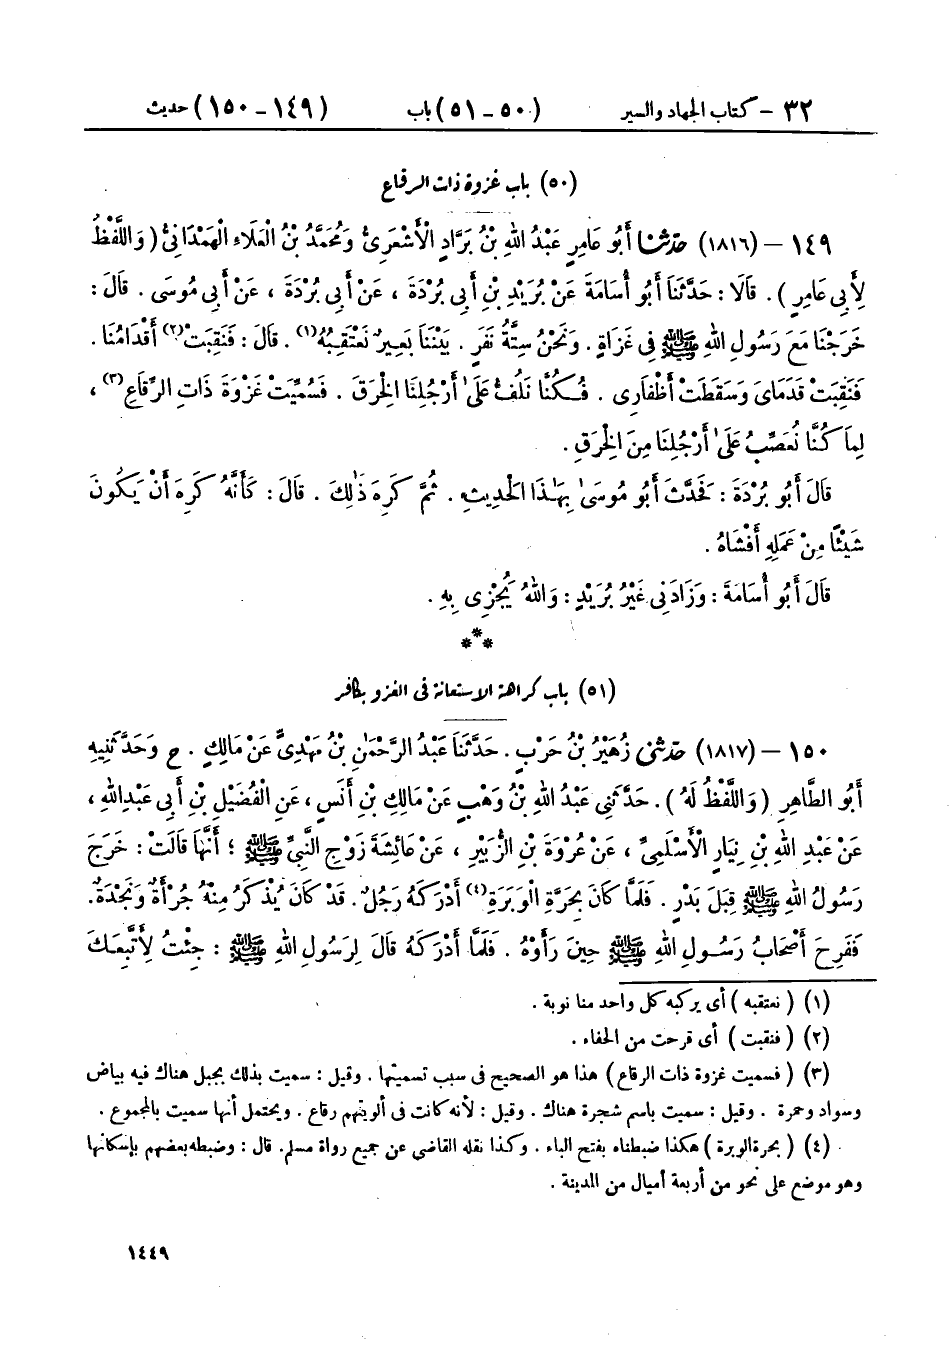 ٣٢ - كتاب الجهاد والسير (٥٠ - ٥١) باب (١٤٩ - ١٥٠) حديث
(٥٠) باب غزوة ذات الرقاع
١٤٩ - (١٨١٦) حَدَّثَنَا أَبُو عَامِرٍ عَبْدُ اللهِ بْنُ بَرَّادٍ الْأَشْعَرِىُّ وَمُحَمَّدُ بْنُ الْعَلَاءِ الْهَمْدَانِىُّ ( وَاللَّفْظُ
لِأَبِى عَامِرٍ ) . قَالَا : حَدَّثَنَا أَبُو أُسَامَةَ عَنْ بُرَيْدِ بْنِ أَبِى بُرْدَةَ ، عَنْ أَبِى بُرْدَةَ ، عَنْ أَبِى مُوسَى . قَالَ :
خَرَجْنَا مَعَ رَسُولِ اللهِ ﷺ فِى غَزَاةٍ . وَنَحْنُ سِتَّةُ نَفَرٍ . بَيْنَنَا بَعِيرٌ نَعْتَقِبُهُ(١) . قَالَ : فَنَقِبَتْ(٢) أَقْدَامُنَا .
فَنَقِبَتْ قَدَمَاىَ وَسَقَطَتْ أَظْفَارِى . فَكُنَّا نَلُفُّ عَلَىٰ أَرْجُلِنَا الْخِرَقَ . فَسُمِّيَتْ غَزْوَةَ ذَاتِ الرِّقَاعِ(٣) ،
لِمَا كُنَّا نُعَصِّبُ عَلَىٰ أَرْجُلِنَا مِنَ الْخِرَقِ .
قَالَ أَبُو بُرْدَةَ : فَحَدَّثَ أَبُو مُوسَىٰ بِهَـٰذَا الْحَدِيثِ . ثُمَّ كَرِهَ ذَٰلِكَ . قَالَ : كَأَنَّهُ كَرِهَ أَنْ يَكُونَ
شَيْئًا مِنْ عَمَلِهِ أَفْشَاهُ .
قَالَ أَبُو أُسَامَةَ : وَزَادَنِى غَيْرُ بُرَيْدٍ : وَاللهُ يُجْزِى بِهِ .
***
(٥١) باب كراهة الاستعانة فى الغزو بكافر
١٥٠ - (١٨١٧) حَدَّثَنِى زُهَيْرُ بْنُ حَرْبٍ . حَدَّثَنَا عَبْدُ الرَّحْمَـٰنِ بْنُ مَهْدِىٍّ عَنْ مَالِكٍ . ح وَحَدَّثَنِيهِ
أَبُو الطَّاهِرِ ( وَاللَّفْظُ لَهُ ) . حَدَّثَنِى عَبْدُ اللهِ بْنُ وَهْبٍ عَنْ مَالِكِ بْنِ أَنَسٍ ، عَنِ الْفُضَيْلِ بْنِ أَبِى عَبْدِاللهِ ،
عَنْ عَبْدِ اللهِ بْنِ نِيَارٍ الْأَسْلَمِىِّ ، عَنْ عُرْوَةَ بْنِ الزُّبَيْرِ ، عَنْ عَائِشَةَ زَوْجِ النَّبِىِّ ﷺ ؛ أَنَّهَا قَالَتْ : خَرَجَ
رَسُولُ اللهِ ﷺ قِبَلَ بَدْرٍ . فَلَمَّا كَانَ بِحَرَّةِ الْوَبَرَةِ(٤) أَدْرَكَهُ رَجُلٌ . قَدْ كَانَ يُذْكَرُ مِنْهُ جُرْأَةٌ وَنَجْدَةٌ .
فَفَرِحَ أَصْحَابُ رَسُولِ اللهِ ﷺ حِينَ رَأَوْهُ . فَلَمَّا أَدْرَكَهُ قَالَ لِرَسُولِ اللهِ ﷺ : جِئْتُ لِأَتَّبِعَكَ
(١) ( نعتقبه ) أى يركبه كل واحد منا نوبة .
(٢) ( فنقبت ) أى قرحت من الحفاء .
(٣) ( فسميت غزوة ذات الرقاع ) هذا هو الصحيح فى سبب تسميتها . وقيل : سميت بذلك بجبل هناك فيه بياض
وسواد وحمرة . وقيل : سميت باسم شجرة هناك . وقيل : لأنه كانت فى ألويتهم رقاع . ويحتمل أنها سميت بالمجموع .
(٤) ( بحرة الوبرة ) هكذا ضبطناه بفتح الباء . وكذا نقله القاضى عن جميع رواة مسلم. قال : وضبطه بعضهم بإسكانها .
وهو موضع على نحو من أربعة أميال من المدينة .
١٤٤٩